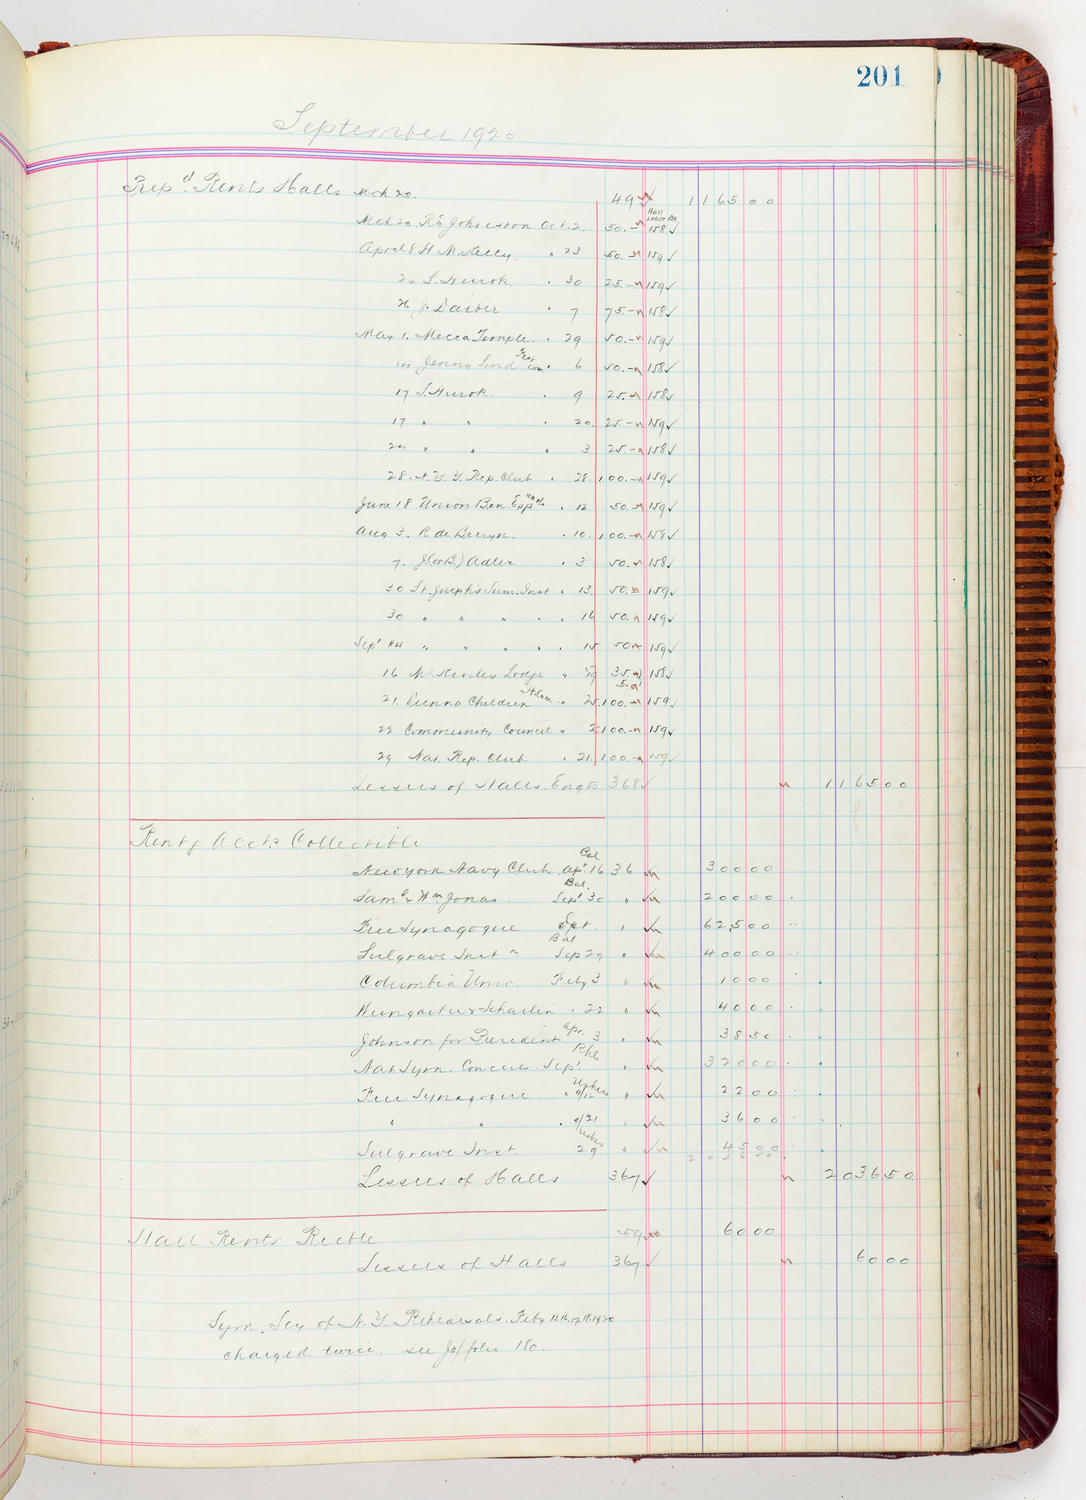 201
September 1920
Prepd. Rents Halls Mch 20. 49 1165 00
Hall Lease Bk
Mch 20. R E Johnston Oct. 2. 50.- 158 ✓
April 8 H. M. Kelly. " 23 50.- 159 ✓
26 S. Hurok. " 30 25.- 159 ✓
26 J. Daiber " 7 75.- 158 ✓
May 1. Mecca Temple. " 29 50.- 159 ✓
Jenny Lind Com. " 6 50.- 158 ✓
17 S. Hurok. " 9 25.- 158 ✓
17 " " " 20. 25.- 159 ✓
" " " 3 25.- 158 ✓
28. N. Y. Y. Rep. Club " 28. 100.- 159 ✓
June 18 Union Ben. " 12 50.- 159 ✓
Aug 3. R. de Bruyn. " 10. 100.- 158 ✓
7. J (or B.) Adler " 3 50.- 158 ✓
30 St. Joseph's Sum. Inst " 13. 50. 159 ✓
30 " " " " " 14 50. 159 ✓
Sept " " " " " 15 50 159 ✓
16 Lodge " 35. 158 ✓
5.
21. Vienna Children " 25. 100.- 159 ✓
22 Community Council " 100.- 159 ✓
29 Nat. Rep. Club " 21. 100.- 159 ✓
Lessees of Halls. Eng'ts 368 ✓ 1165 00
Rent of Accts Collectible
New York Navy Club Bal Apl. 16 36 300 00
Saml & Wm Jonas. Bal. Sept. 30 " 200 00
Free Synagogue Sept. " 625 00
Sulgrave Instn Bal Sep 29 " 400 00
Columbia Univ. Feby 3 " 10 00
" 22 " 40 00
Johnson for President Apr. 3 " 38 50
Nat Sym. Concert Sept. Rhls " 320 00
Free Synagogue " Ushers 9/12 " 22 00
" " " 9/21 " 36 00
Sulgrave Inst. Ushers 29 " 45 00
2 0 3 6 50
Lessees of Halls 367 ✓ 2036 50
Hall Rents Rcble 59 60 00
Lessees of Halls 367 ✓ 60 00
Sym. Socy of N. Y. Rehearsals. Feby 1920
charged twice. see Jo/folio 180.